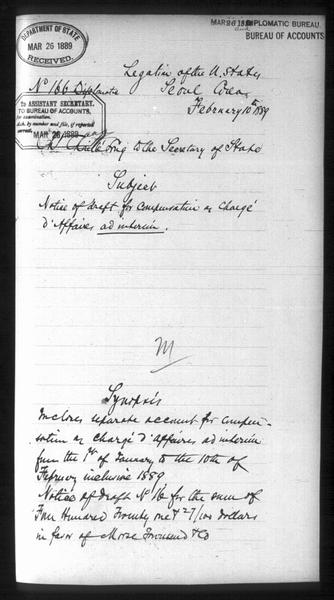 DEPARTMENT OF STATE
MAR 26 1889
RECEIVED.
MAR 26 1889
DIPLOMATIC BUREAU.
and
BUREAU OF ACCOUNTS
Legation of the U. States
No 166 Diplomatic
Seoul Corea
February 10th 1889
To ASSISTANT SECRETARY.
TO BUREAU OF ACCOUNTS,
for examination.
MAR 26 1889
Chaillé Long to the Secretary of State
Subject
Notice of draft for Compensation as Chargé
d'Affaires ad interim.
M
Synopsis
Incloses separate account for compen-
sation as chargé d'affaires ad interim
from the 1st of January to the 10th of
February inclusive 1889
Notice of Draft No 16 for the sum of
Four Hundred Twenty one & 27/100 dollars
in favor of Morse Townsend & Co